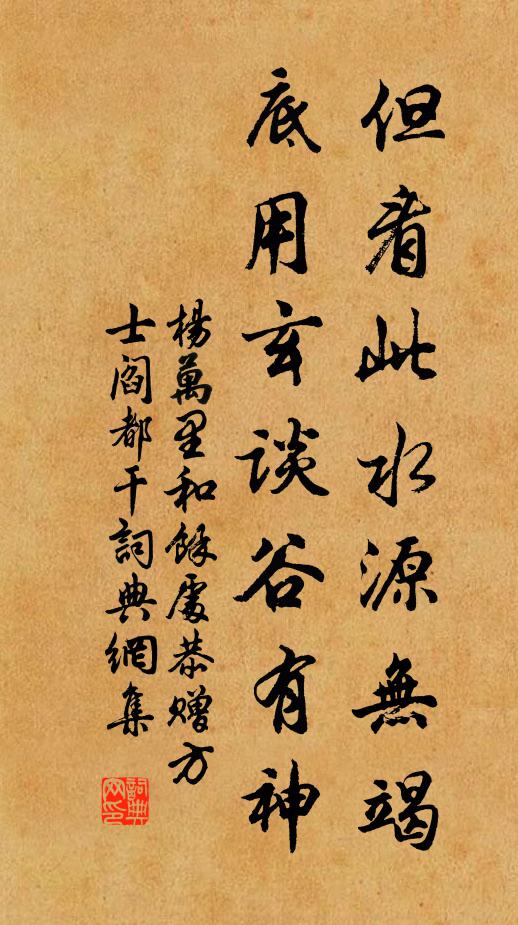 但看此水源無竭
底用玄談谷有神
楊萬里和餘處恭贈方
士閻都干詞典網集
詞典网印